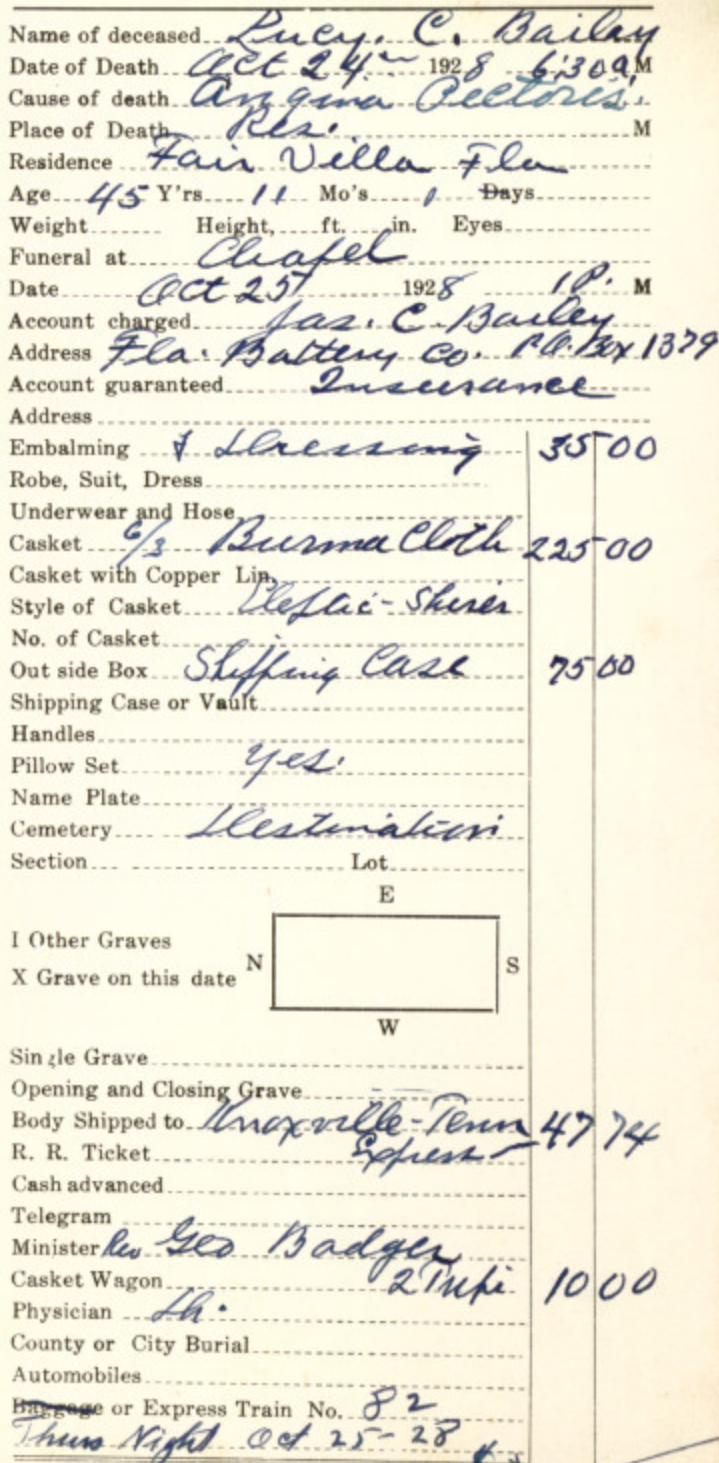 Name of deceased Lucy. C. Bailey
Date of Death Oct 24 1928 6:30 a. M
Cause of death Angina Pectoris.
Place of Death Res. M
Residence Fair Villa Fla
Age 45 Y'rs 11 Mo's 1 Days
Weight Height, ft. in. Eyes
Funeral at Chapel
Date Oct 25 1928 1 P. M
Account charged Jas. C. Bailey
Address Fla. Battery Co. P.O. Box 1379
Account guaranteed Insurance
Address
Embalming & Dressing 35 00
Robe, Suit, Dress
Underwear and Hose
Casket 6/3 Burma Cloth 225 00
Casket with Copper Lin,
Style of Casket
No. of Casket
Out side Box Shipping Case 75 00
Shipping Case or Vault
Handles
Pillow Set Yes.
Name Plate
Cemetery Destination
Section Lot
E
I Other Graves
N S
X Grave on this date
W
Single Grave
Opening and Closing Grave
Body Shipped to Knoxville-Tenn 47 74
R. R. Ticket Express
Cash advanced
Telegram
Minister Rev Geo Badger
Casket Wagon 2 Trips 10 00
Physician
County or City Burial
Automobiles
Baggage or Express Train No. 82
Thurs Night Oct 25-28